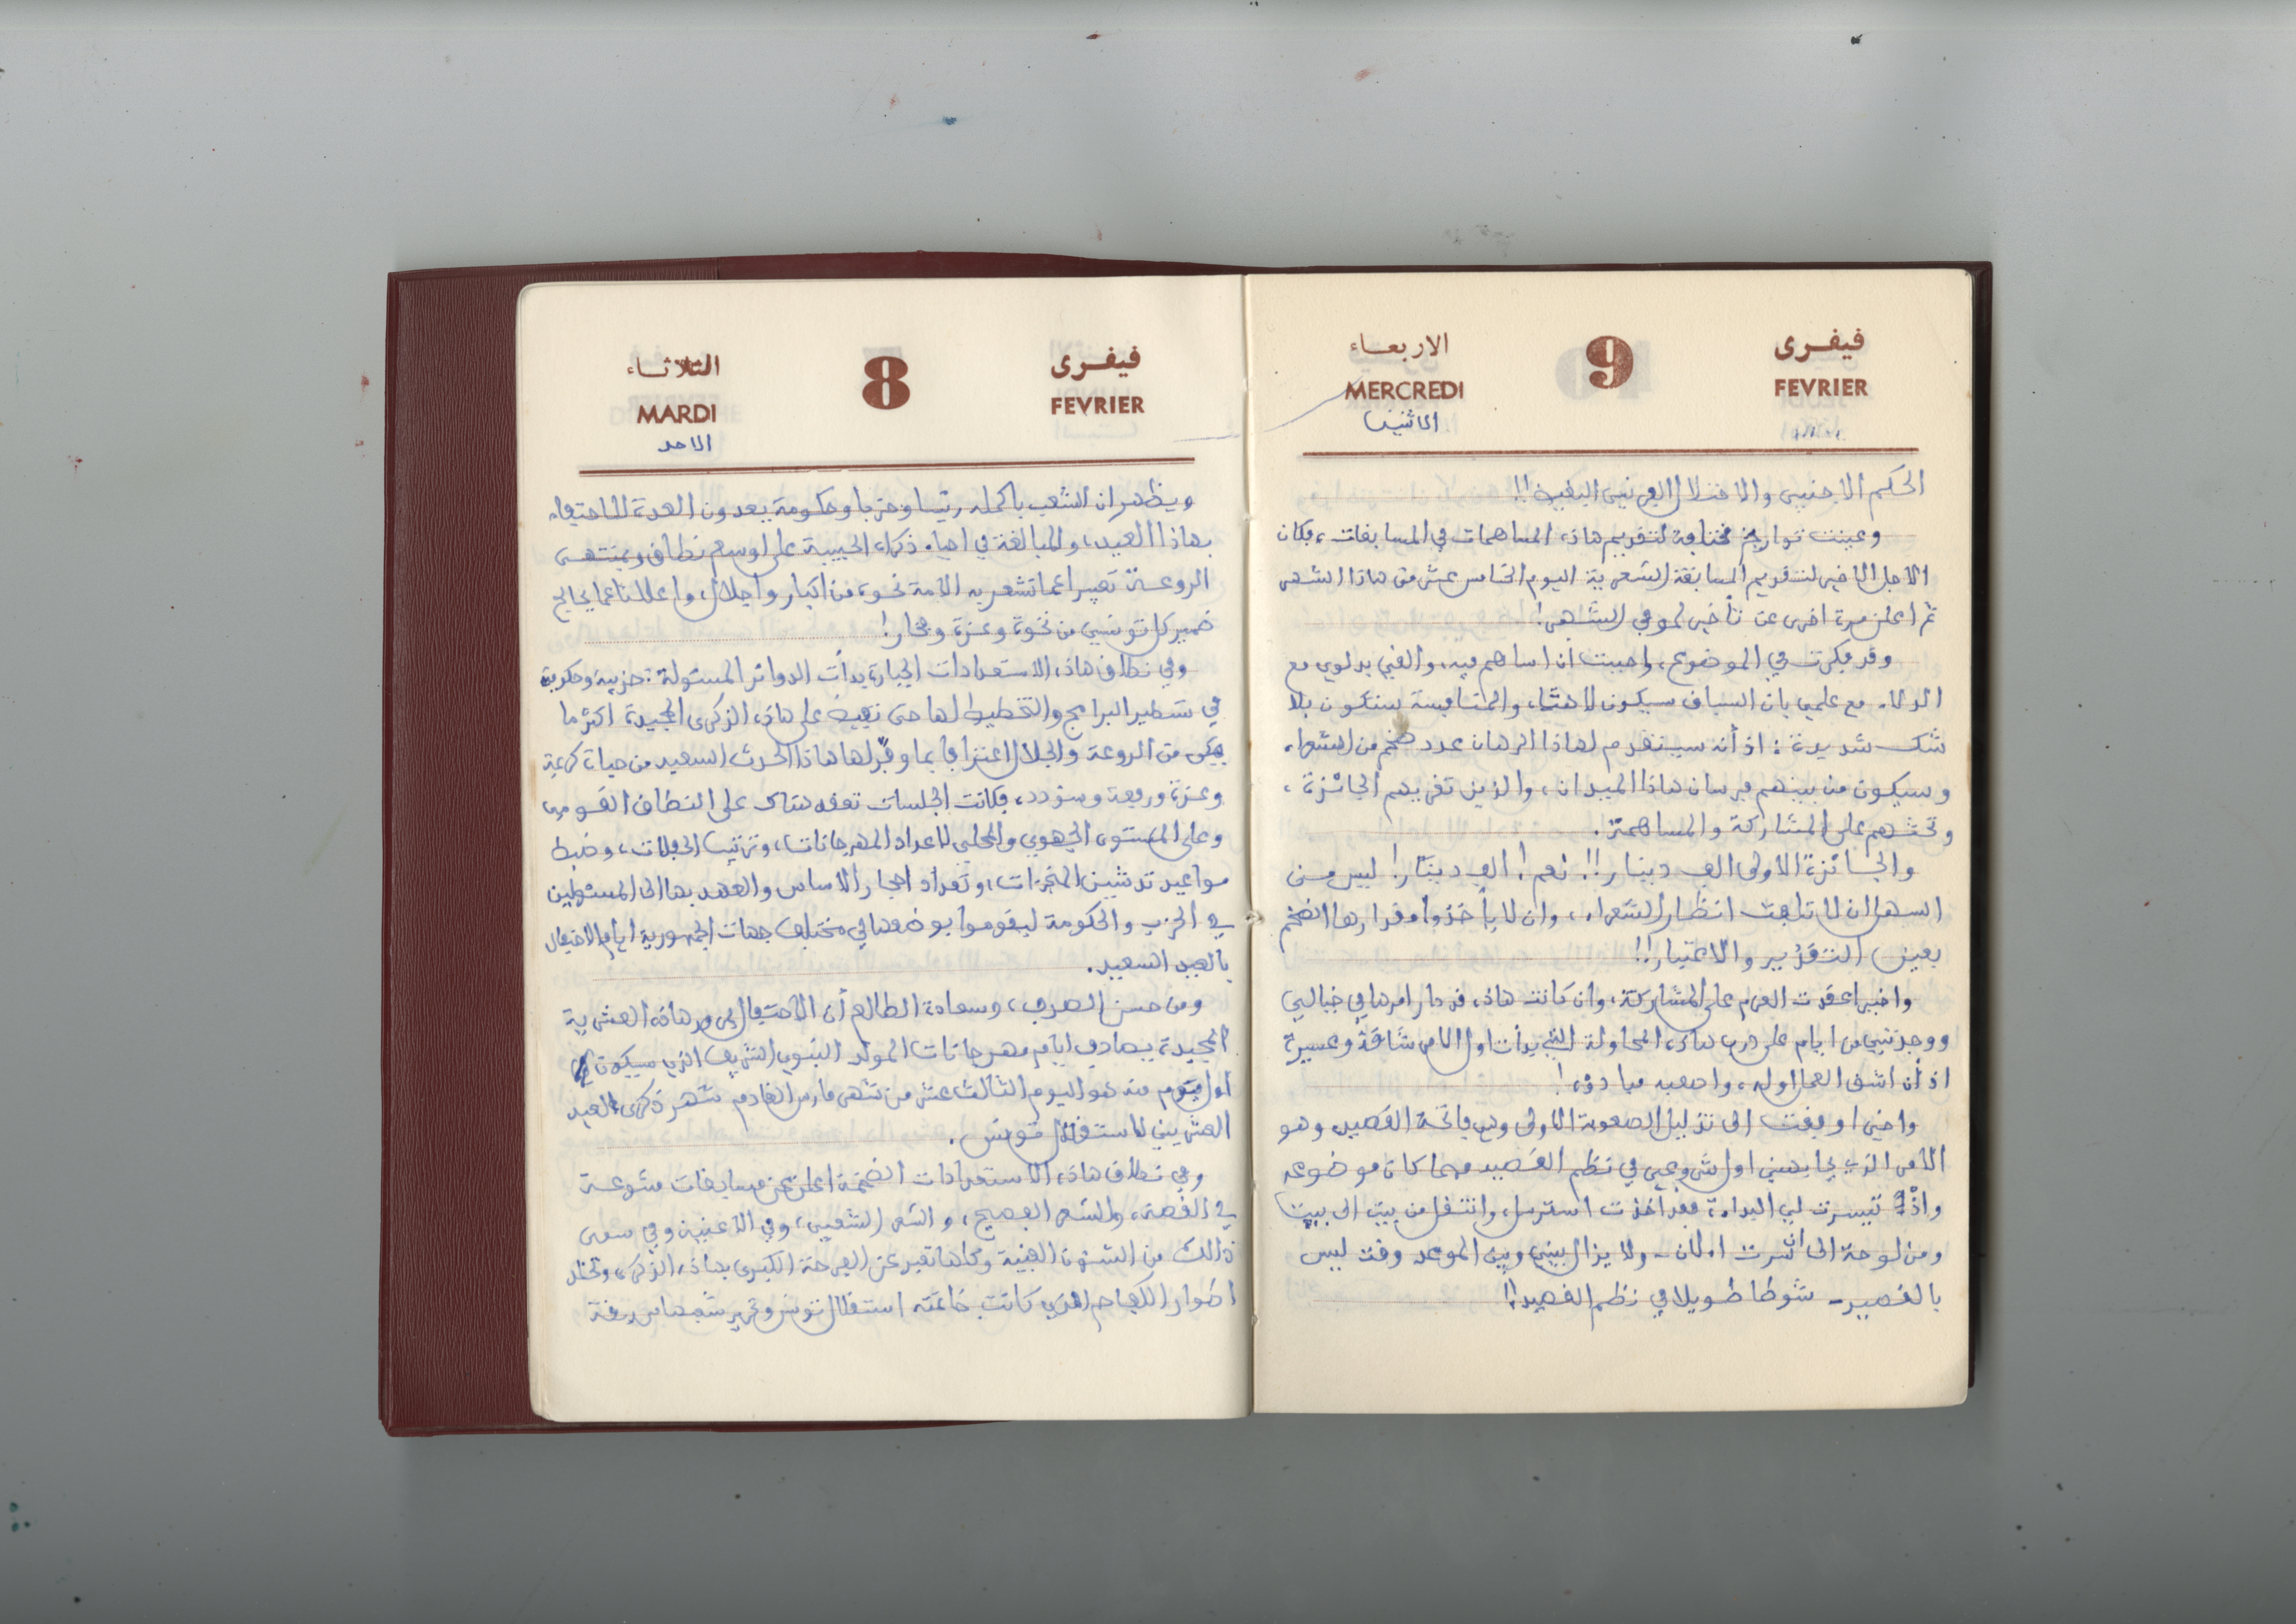 فيفرى 8 الثلاثاء
FEVRIER MARDI
الاحد
ويظهر ان الشعب باكمله رئيسا وحزبا وحكومة يعدون العدة للاحتفاء
بهاذا العيد، والمبالغة في احياء ذكراه الحبيبة على اوسع نطاق وبمنتهى
الروعة تعبيرا عما تشعر به الامة نحوه من اكبار واجلال، واعلانا عما يخالج
ضمير كل تونسي من نخوة وعزة وفخار!
وفي نطاق هاذه الاستعدادات الجبارة بدأت الدوائر المسئولة: حزبية وحكومية
في تسطير البرامج والتخطيط لها حتى نضيف على هاذه الذكرى المجيدة اكثر ما
يمكن من الروعة والجلال اعترافا بما وفر لها هاذا الحدث السعيد من حياة كريمة
وعزة ورفعة وسؤدد، فكانت الجلسات تعقد هناك على النطاق القومي
وعلى المستوى الجهوي والمحلي لاعداد المهرجانات، وترتيب الحفلات، وضبط
مواعيد تدشين المنجزات، وتعداد احجار الاساس والعهد بها الى المسئولين
في الحزب والحكومة ليقوموا بوضعها في مختلف جهات الجمهورية ايام الاحتفال
بالعيد السعيد.
ومن حسن الصدف، وسعادة الطالع أن الاحتفال بمرور هاذه العشرية
المجيدة يصادف ايام مهرجانات المولد النبوي الشريف الذي سيكون
اول يوم منه هو اليوم الثالث عشر من شهر مارس القادم شهر ذكرى العيد
العشريني لاستقلال تونس.
وفي نطاق هاذه الاستعدادات الضخمة اعلن عن مسابقات متنوعة
في القصة، والشعر الفصيح، والشعر الشعبي، وفي الاغنية وفي سوى
ذالك من الشئون الفنية وكلها تعبر عن الفرحة الكبرى بهاذه الذكرى، وتخلد
اطوار الكفاح الذي كانت خاتمته استقلال تونس وتحرير شعبها من ربقة
فيفرى 9 الاربعاء
FEVRIER MERCREDI
الاثنين
الحكم الاجنبي والاحتلال الفرنسي البغيض!!
وعينت تواريخ مختلفة لتقديم هاذه المساهمات في المسابقات، فكان
الاجل الاخير لتقديم المسابقة الشعرية اليوم الخامس عشر من هاذا الشهر
ثم اعلن مرة اخرى عن تأخير لموفي الشهر!
وقد فكرت في الموضوع، واحببت أن اساهم فيه، والقي بدلوي مع
الدلاء مع علمي بان السباق سيكون لاهثا، والمنافسة ستكون بلا
شك شديدة: اذ أنه سيتقدم لهاذا الرهان عدد ضخم من الشعراء
وسيكون من بينهم فرسان هاذا الميدان، والذين تغريهم الجائزة،
وتحثهم على المشاركة والمساهمة.
والجائزة الاولى الف دينار!! نعم! الف دينار! ليس من
السهل ان لا تلفت انظار الشعراء، وان لا يأخذوا مقدارها الضخم
بعين التقدير والاعتبار!!
واخيرا عقدت العزم على المشاركة، وان كانت هاذه قد دار امرها في خيالي
ووجدتني من ايام على درب هاذه المحاولة التي بدأت اول الامر شاقة وعسيرة
اذ أن اشق العمل اوله، واصعبه مبادؤه!
واخيرا وفقت الى تذليل الصعوبة الاولى وهي فاتحة القصيد وهو
الامر الذي يجابهني اول شروعي في نظم القصيد مهما كان موضوعه
واذْ تيسرت لي البداءة، فقد اخذت استرسل وانتقل من بيت الى بيت
ومن لوحة الى اخرى الى ان سرت الان - ولا يزال بيني وبين الموعد وقت ليس
بالقصير - شوطا طويلا في نظم القصيد!!